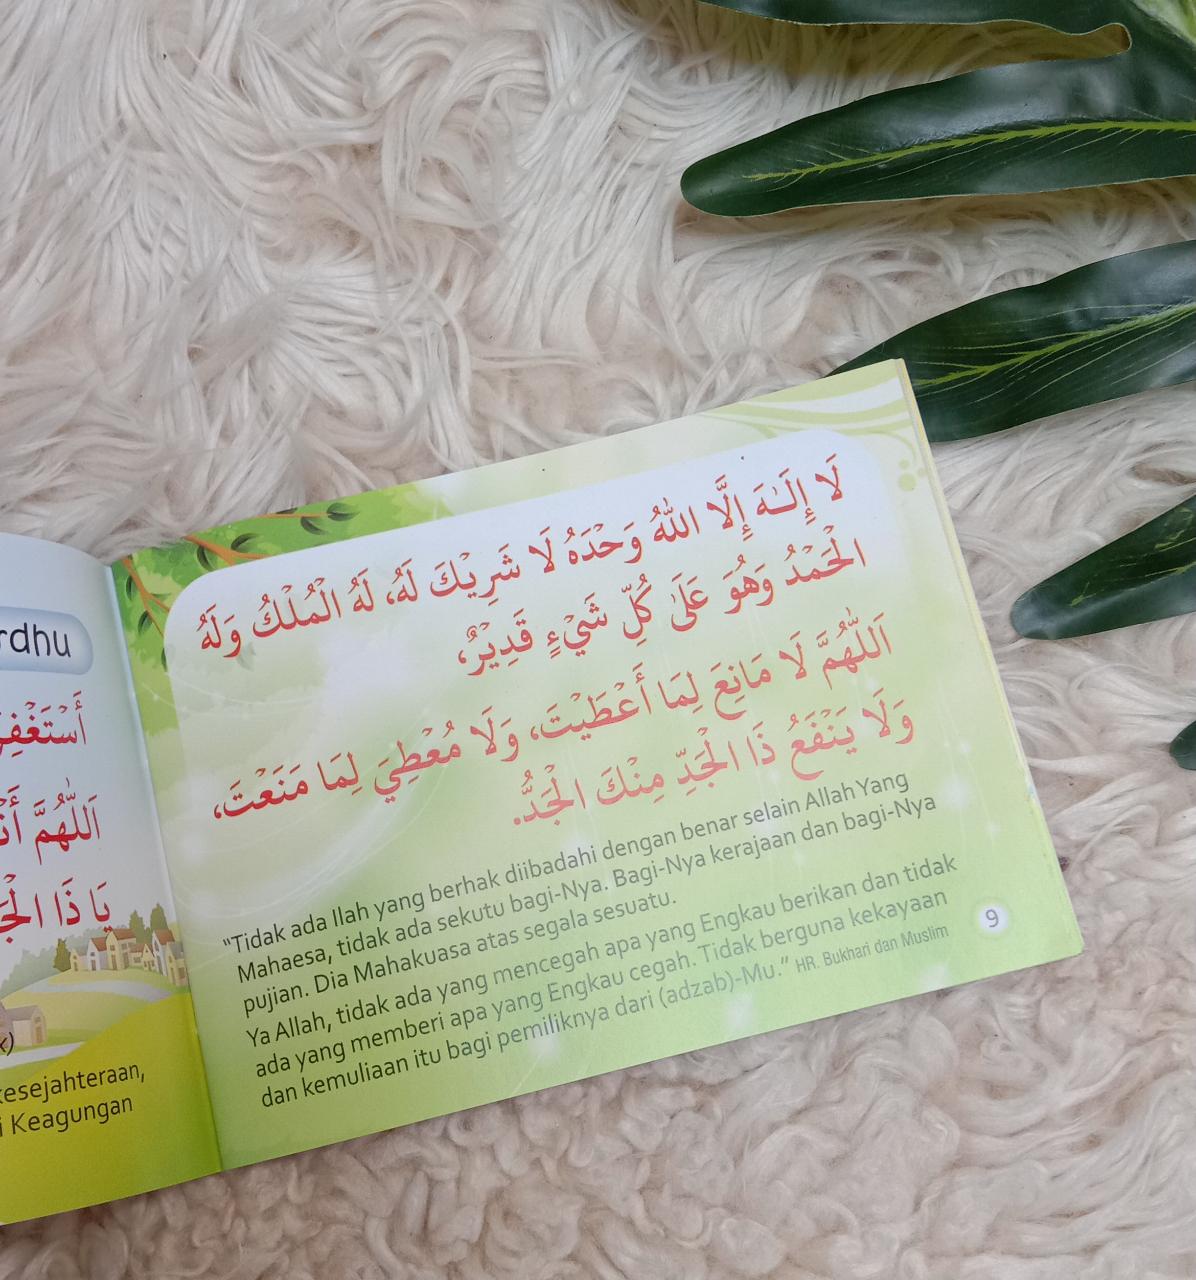 rdhu
أَسْتَغْفِ
اَللّٰهُمَّ أَنْ
يَا ذَا الْجَ
x)
kesejahteraan,
i Keagungan
لَا إِلَـٰهَ إِلَّا اللّٰهُ وَحْدَهُ لَا شَرِيْكَ لَهُ، لَهُ الْمُلْكُ وَلَهُ
الْحَمْدُ وَهُوَ عَلَىٰ كُلِّ شَيْءٍ قَدِيْرٌ،
اَللّٰهُمَّ لَا مَانِعَ لِمَا أَعْطَيْتَ، وَلَا مُعْطِيَ لِمَا مَنَعْتَ،
وَلَا يَنْفَعُ ذَا الْجَدِّ مِنْكَ الْجَدُّ.
"Tidak ada Ilah yang berhak diibadahi dengan benar selain Allah Yang
Mahaesa, tidak ada sekutu bagi-Nya. Bagi-Nya kerajaan dan bagi-Nya
pujian. Dia Mahakuasa atas segala sesuatu.
Ya Allah, tidak ada yang mencegah apa yang Engkau berikan dan tidak
ada yang memberi apa yang Engkau cegah. Tidak berguna kekayaan
dan kemuliaan itu bagi pemiliknya dari (adzab)-Mu." HR. Bukhari dan Muslim
9